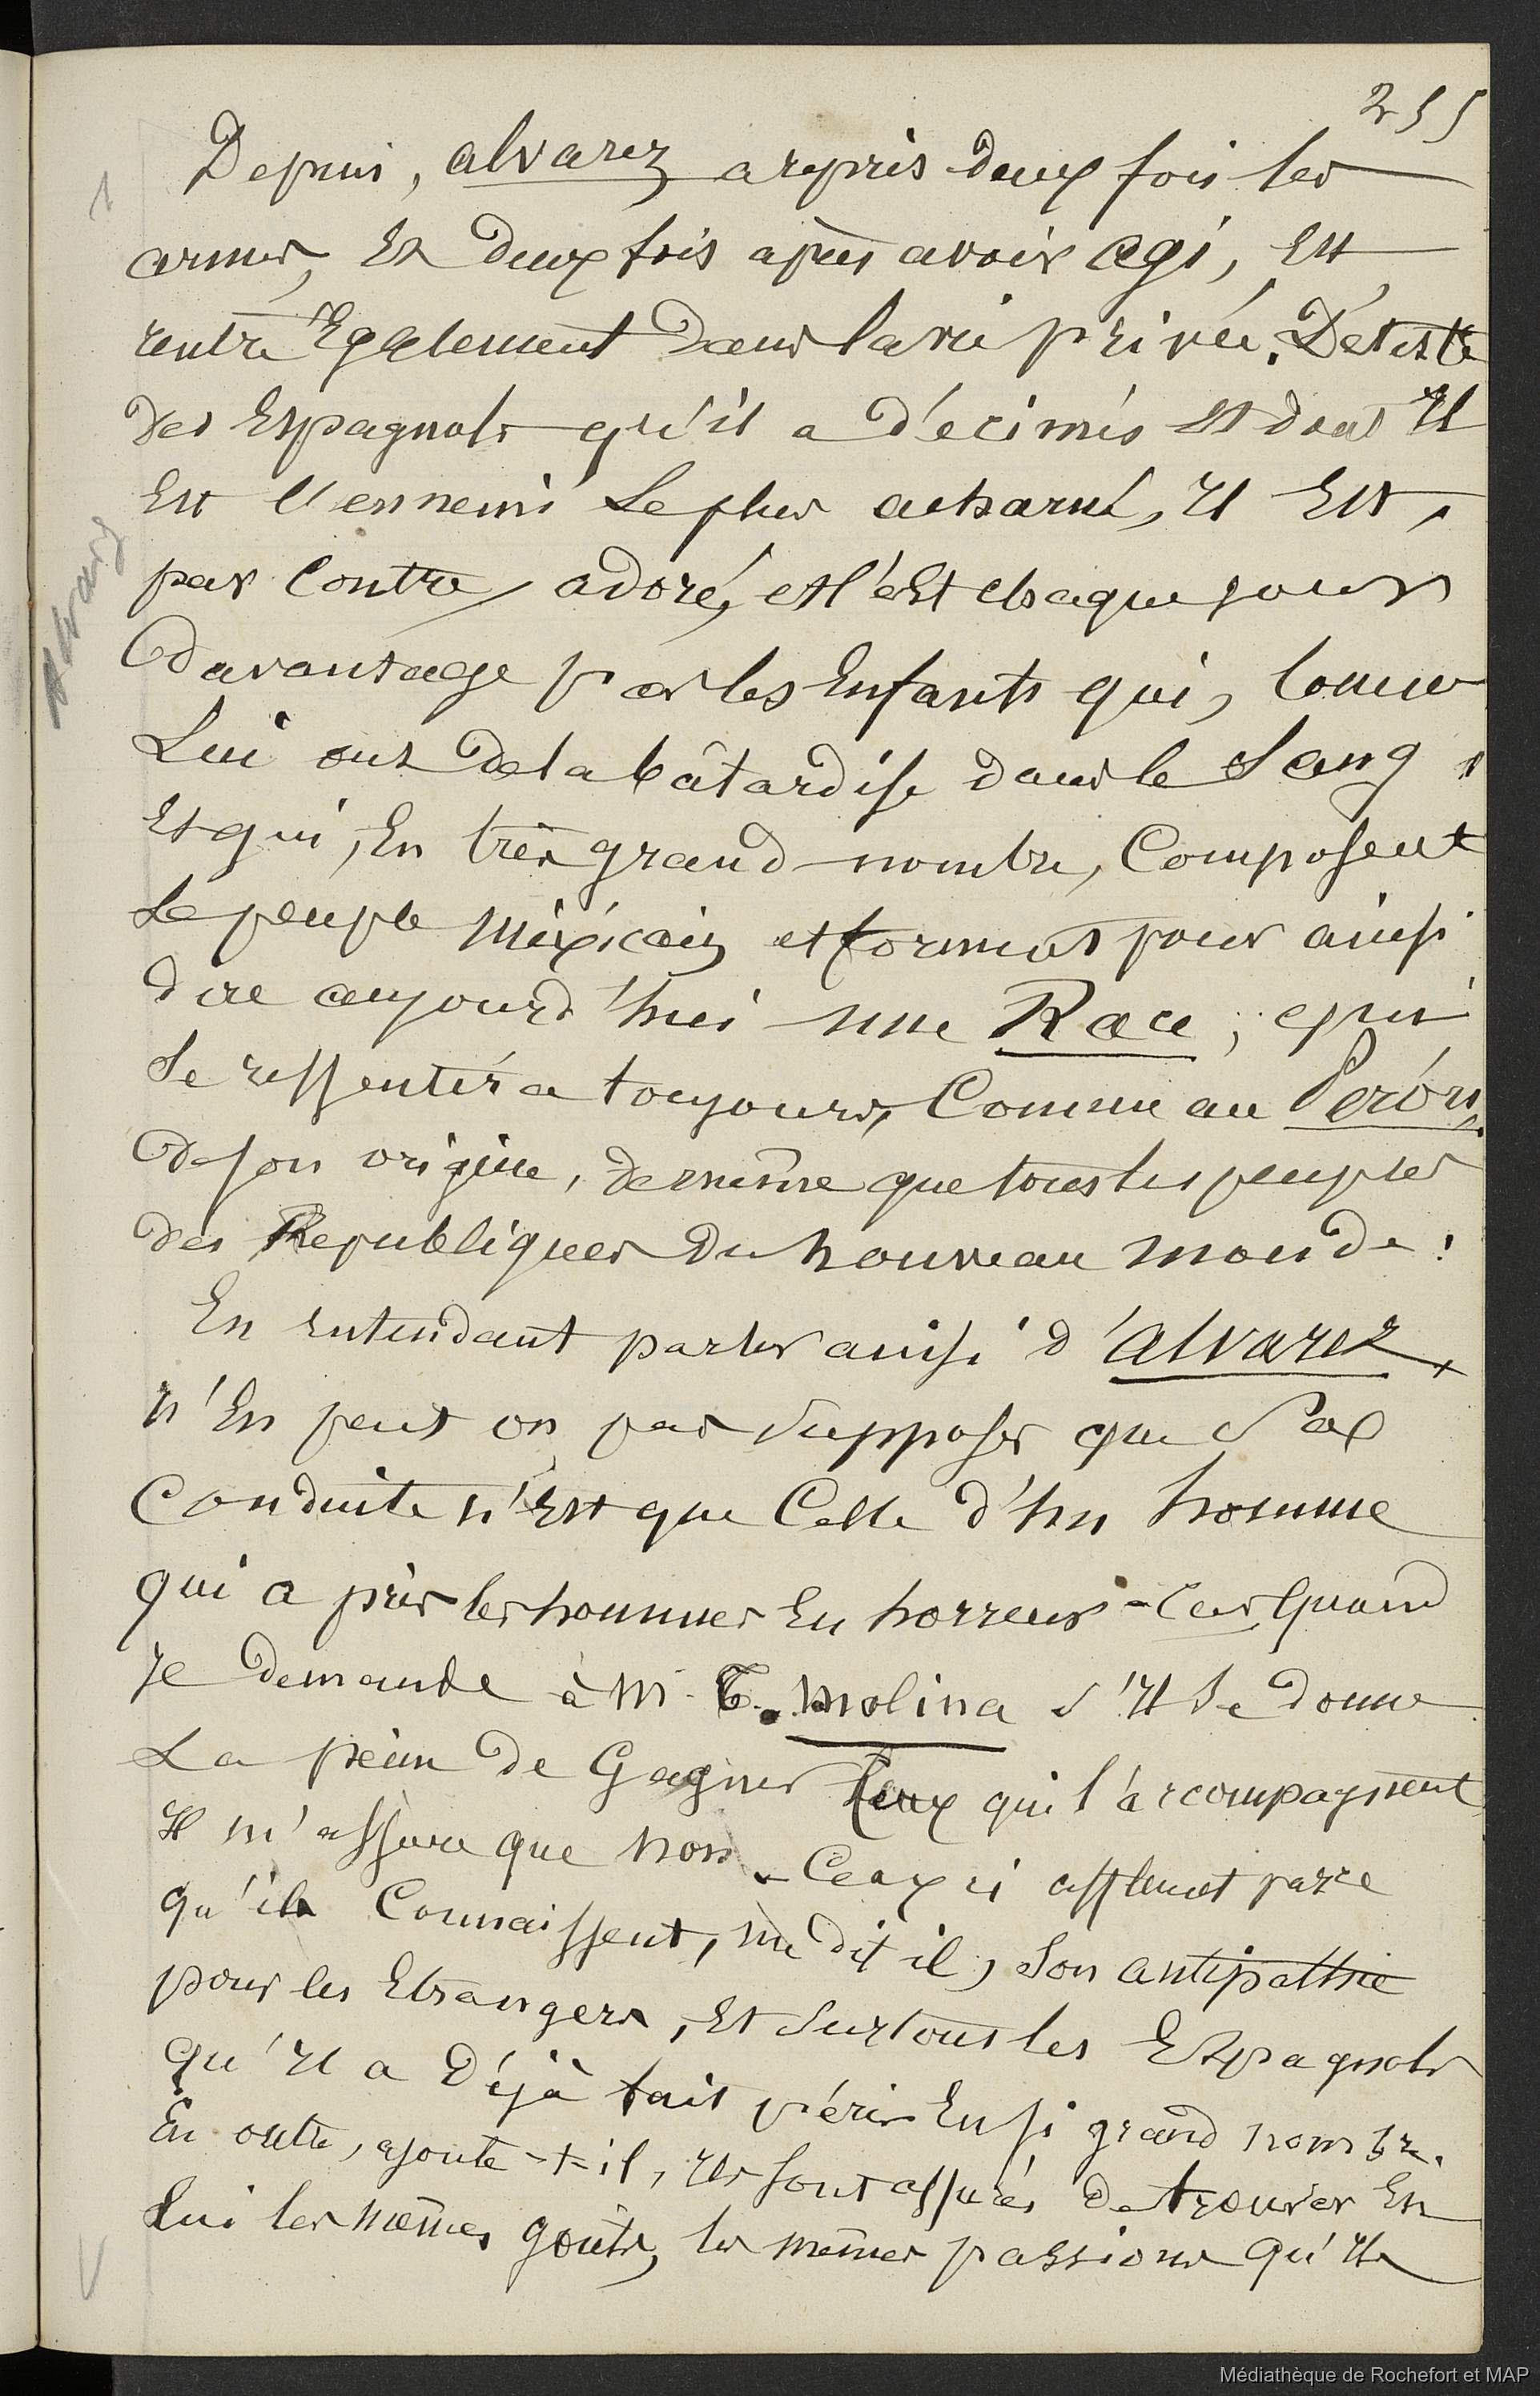 255
Depuis, alvarez a repris deux fois les
armes, Et deux fois après avoir agi, Est
rentré Egalement dans la vie privée. Détesté
des Espagnols qu'il a décimés Et dont Il
Est l'ennemi Le plus acharné, Il Est,
par Contre, adoré, et l'est chaque jour
Davantage par les Enfants qui, Comme
Lui ont de la bâtardise dans le Sang,
Et qui, En très grand nombre, Composent
Le peuple Méxicain et forment pour ainsi
dire aujourd'hui une Race, qui
Se ressentira toujours, Comme au Pérou,
De son origine, de même que tous les peuples
des Républiques du nouveau monde.
En Entendant parler ainsi d'Alvarez,
n'En peut on pas Supposer que Sa
Conduite n'Est que Celle d'un homme
qui a pris les hommes En horreur - Car Quand
Je demande à M. T. Molina s'Il Se donne
La peine de Gagner Ceux qui l'accompagnent,
Il m'assure que non. - Ceux ci affluent parce
qu'ils Connaissent, me dit il, Son antipathie
pour les Etrangers, Et Surtout les Espagnols
qu'Il a Déjà fait périr En si grand nombre.
En outre, ajoute-t-il, Ils sont assurés de trouver En
Lui les mêmes goûts, les mêmes passions qu'Ils
Alvarez
Médiathèque de Rochefort et MAP